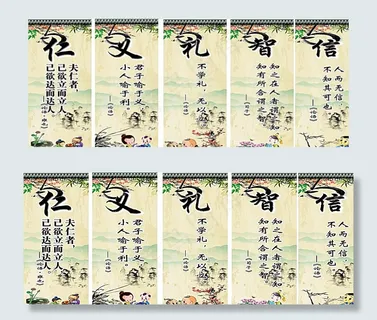 仁
夫仁者,
己欲立而立人
己欲达而达人。
——《论语·雍也》
义
君子喻于义
小人喻于利
——《论语》
礼
不学礼,无以立
——《论语》
智
知之在人者谓之知
知有所合谓之智
信
人而无信
不知其可也
——《论语》
仁
夫仁者,
己欲立而立人
己欲达而达人。
——《论语·雍也》
义
君子喻于义
小人喻于利
——《论语》
礼
不学礼,无以立
——《论语》
智
知之在人者谓之知
知有所合谓之智
信
人而无信
不知其可也
——《论语》